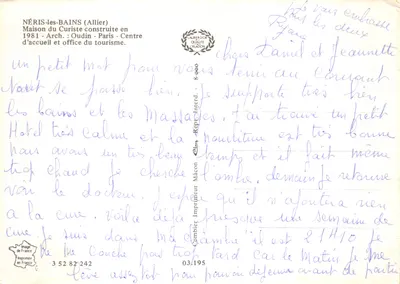 NÉRIS-les-BAINS (Allier)
Maison du Curiste construite en
1981 - Arch. : Oudin - Paris - Centre
d'accueil et office du tourisme.
vous embrasse
tous les deux
chers Daniel et Jeannette
Un petit mot pour vous tenir au courant
tout se passe bien. Je supporte très bien
les bains et les Massages. J'ai trouvé un petit
Hotel très calme et la nourriture est très bonne
nous avons un très beau temps et il fait même
trop chaud je cherche l'ombre. demain je retourne
voir le docteur. J'espère qu'il s'ajoutera rien
a la cure. Voila déjà presque une semaine de
cure je suis dans ma chambre il est 21H10 je
ne me couche pas trop tard car le Matin je me
lève assez tôt pour pouvoir déjeuner avant de partir
Combier Imprimeur Mâcon
3 52 82 242
03/195